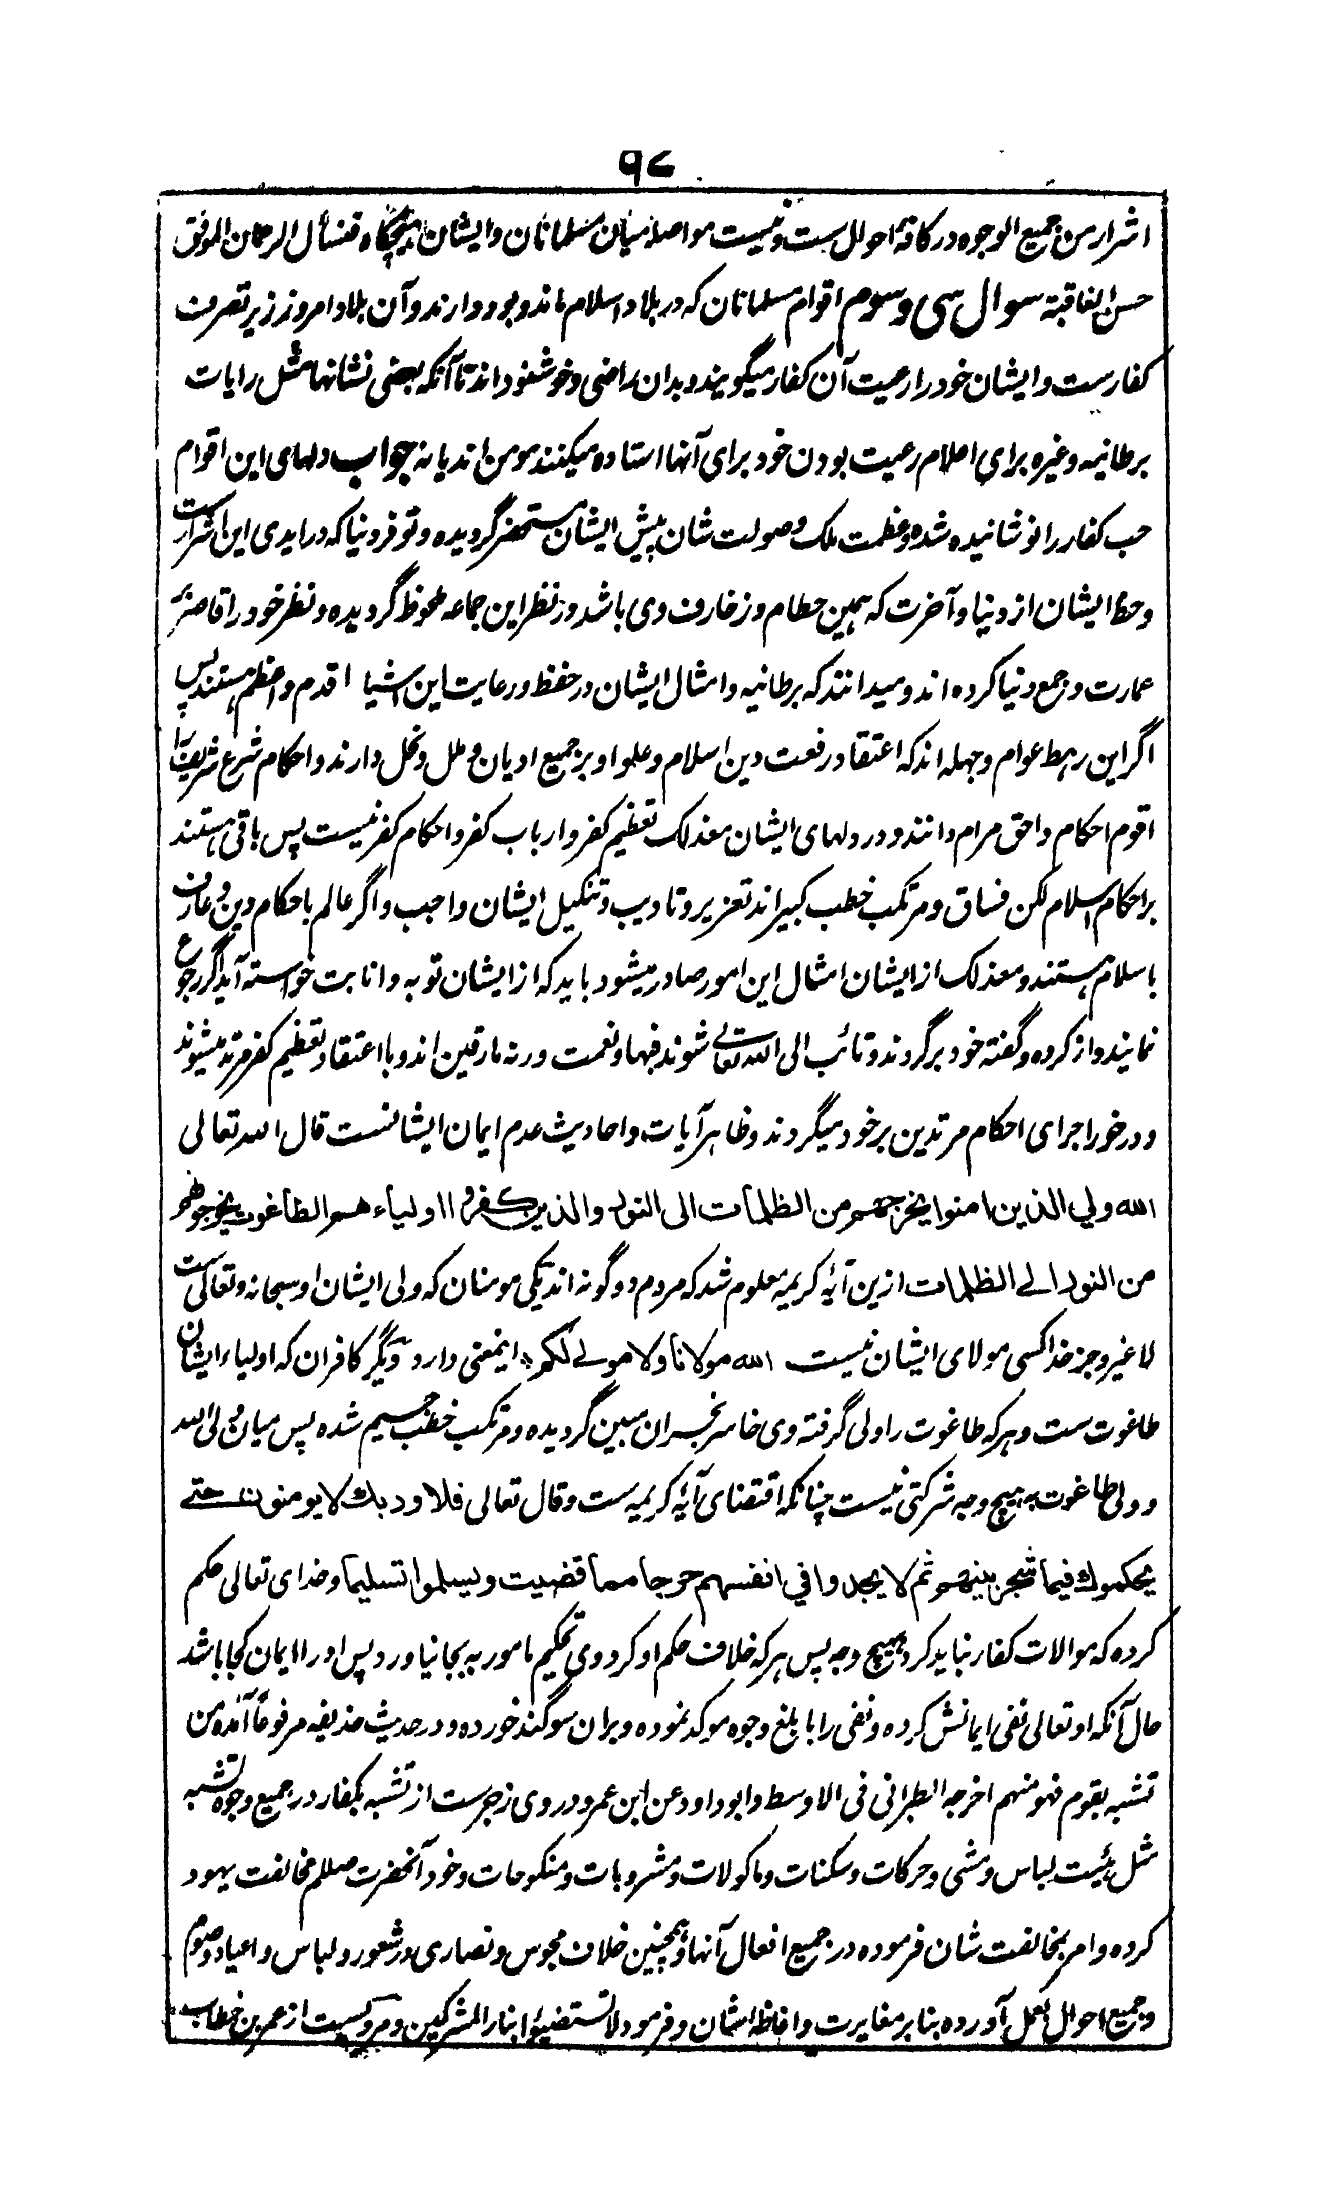 ۹۷
اشرار من جمیع الوجوه در کافهٔ احوال ست و نیست مواصله میان مسلمانان و ایشان هیچگاه فنسأل الرحمان الموفق
حسن العاقبة سوال سی و سوم اقوام مسلمانان که در بلاد اسلام ماند و بود دارند و آن بلاد امروز زیر تصرف
کفارست و ایشان خود را رعیت آن کفار میگویند و بدان راضی و خوشنود اند تا آنکه بعضی نشانها مثل رایات
برطانیه و غیره برای اعلام رعیت بودن خود برای آنها استاده میکنند مومن اند یا نه جواب دلهای این اقوام
حب کفار را نوشانیده شده و عظمت ملک و صولت شان پیش ایشان مستحضر گردیده و توفر دنیا که در ایدی این اشرارست
و حظ ایشان از دنیا و آخرت که همین حطام و زخارف دی باشد در نظر این جماعه ملحوظ گردیده و نظر خود را قاصر بر
عمارت و جمع دنیا کرده اند و میدانند که برطانیه و امثال ایشان در حفظ و رعایت این اشیا اقدم و اعظم هستند پس
اگر این رهط عوام و جهله اند که اعتقاد رفعت دین اسلام و علو او بر جمیع ادیان و ملل و نحل دارند و احکام شرع شریف را
اقوم احکام و احق مرام دانند و در دلهای ایشان معذلک تعظیم کفر و ارباب کفر و احکام کفر نیست پس باقی هستند
بر احکام اسلام لکن فساق و مرتکب خطب کبیر اند تعزیر و تادیب و تنکیل ایشان واجب و اگر عالم باحکام دین و عارف
باسلام هستند و معذلک از ایشان امثال این امور صادر میشود باید که از ایشان توبه و انابت خواسته آید اگر رجوع
نمایند و از کرده و گفته خود برگردند و تائب الی الله تعالی شوند فبها و نعمت ورنه مارقین اند و با اعتقاد تعظیم کفر مرتد میشوند
و در خور اجرای احکام مرتدین بر خود میگردند و ظاهر آیات و احادیث عدم ایمان ایشانست قال الله تعالی
الله ولي الذين امنوا يخرجهم من الظلمات الى النور والذين كفروا اولياءهم الطاغوت يخرجونهم
من النور الے الظلمات ازین آیهٔ کریمه معلوم شد که مردم دو گونه اند یکی مومنان که ولی ایشان او سبحانه و تعالی ست
لا غیر و جز خدا کسی مولای ایشان نیست الله مولانا ولا مولے لكم اینمعنی دارد دیگر کافران که اولیاء ایشان
طاغوت ست و هر که طاغوت را ولی گرفته وی خاسر بخسران مبین گردیده و مرتکب خطب جسیم شده پس میان ولی الله
و ولی طاغوت به هیچ وجه شرکتی نیست چنانکه اقتضای آیهٔ کریمه ست و قال تعالی فلا وربك لا يومنون حتے
يحكموك فيما شجر بينهم ثم لا يجدوا في انفسهم حرجا مما قضيت ويسلموا تسليما و خدای تعالی حکم
کرده که موالات کفار نباید کرد بهیچ وجه پس هر که خلاف حکم او کرد وی تحکیم مامور به بجا نیاورد پس او را ایمان کجا باشد
حال آنکه او تعالی نفی ایمانش کرده و نفی را بابلغ وجوه موکد نموده و بران سوگند خورده و در حدیث حذیفه مرفوعاً آمده من
تشبه بقوم فهو منهم اخرجه الطبرانی فی الاوسط و ابوداود عن ابن عمر و در وی زجرست از تشبه بکفار در جمیع وجوه تشبه
مثل هیئت لباس و مشی و حرکات و سکنات و ماکولات و مشروبات و منکوحات و خود آنحضرت صللم مخالفت یهود
کرده و امر بمخالفت شان فرموده در جمیع افعال آنها و همچنین خلاف مجوس و نصاری در شعور و لباس و اعیاد و صوم
و جمیع احوال بعمل آورده بنا بر مغایرت و اغاظهٔ اشان و فرمود لا تستضیئوا بنار المشرکین و مرویست از عمر بن خطاب